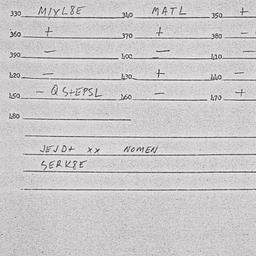 330 MIXL8E 340 MATL 350 +
360 + 370 + 380 -
390 - 400 - 410 -
420 - 430 + 440 -
450 - Q S+EPSL 460 - 470 +
480
JEJD+ xx NOMEN
SERK8E